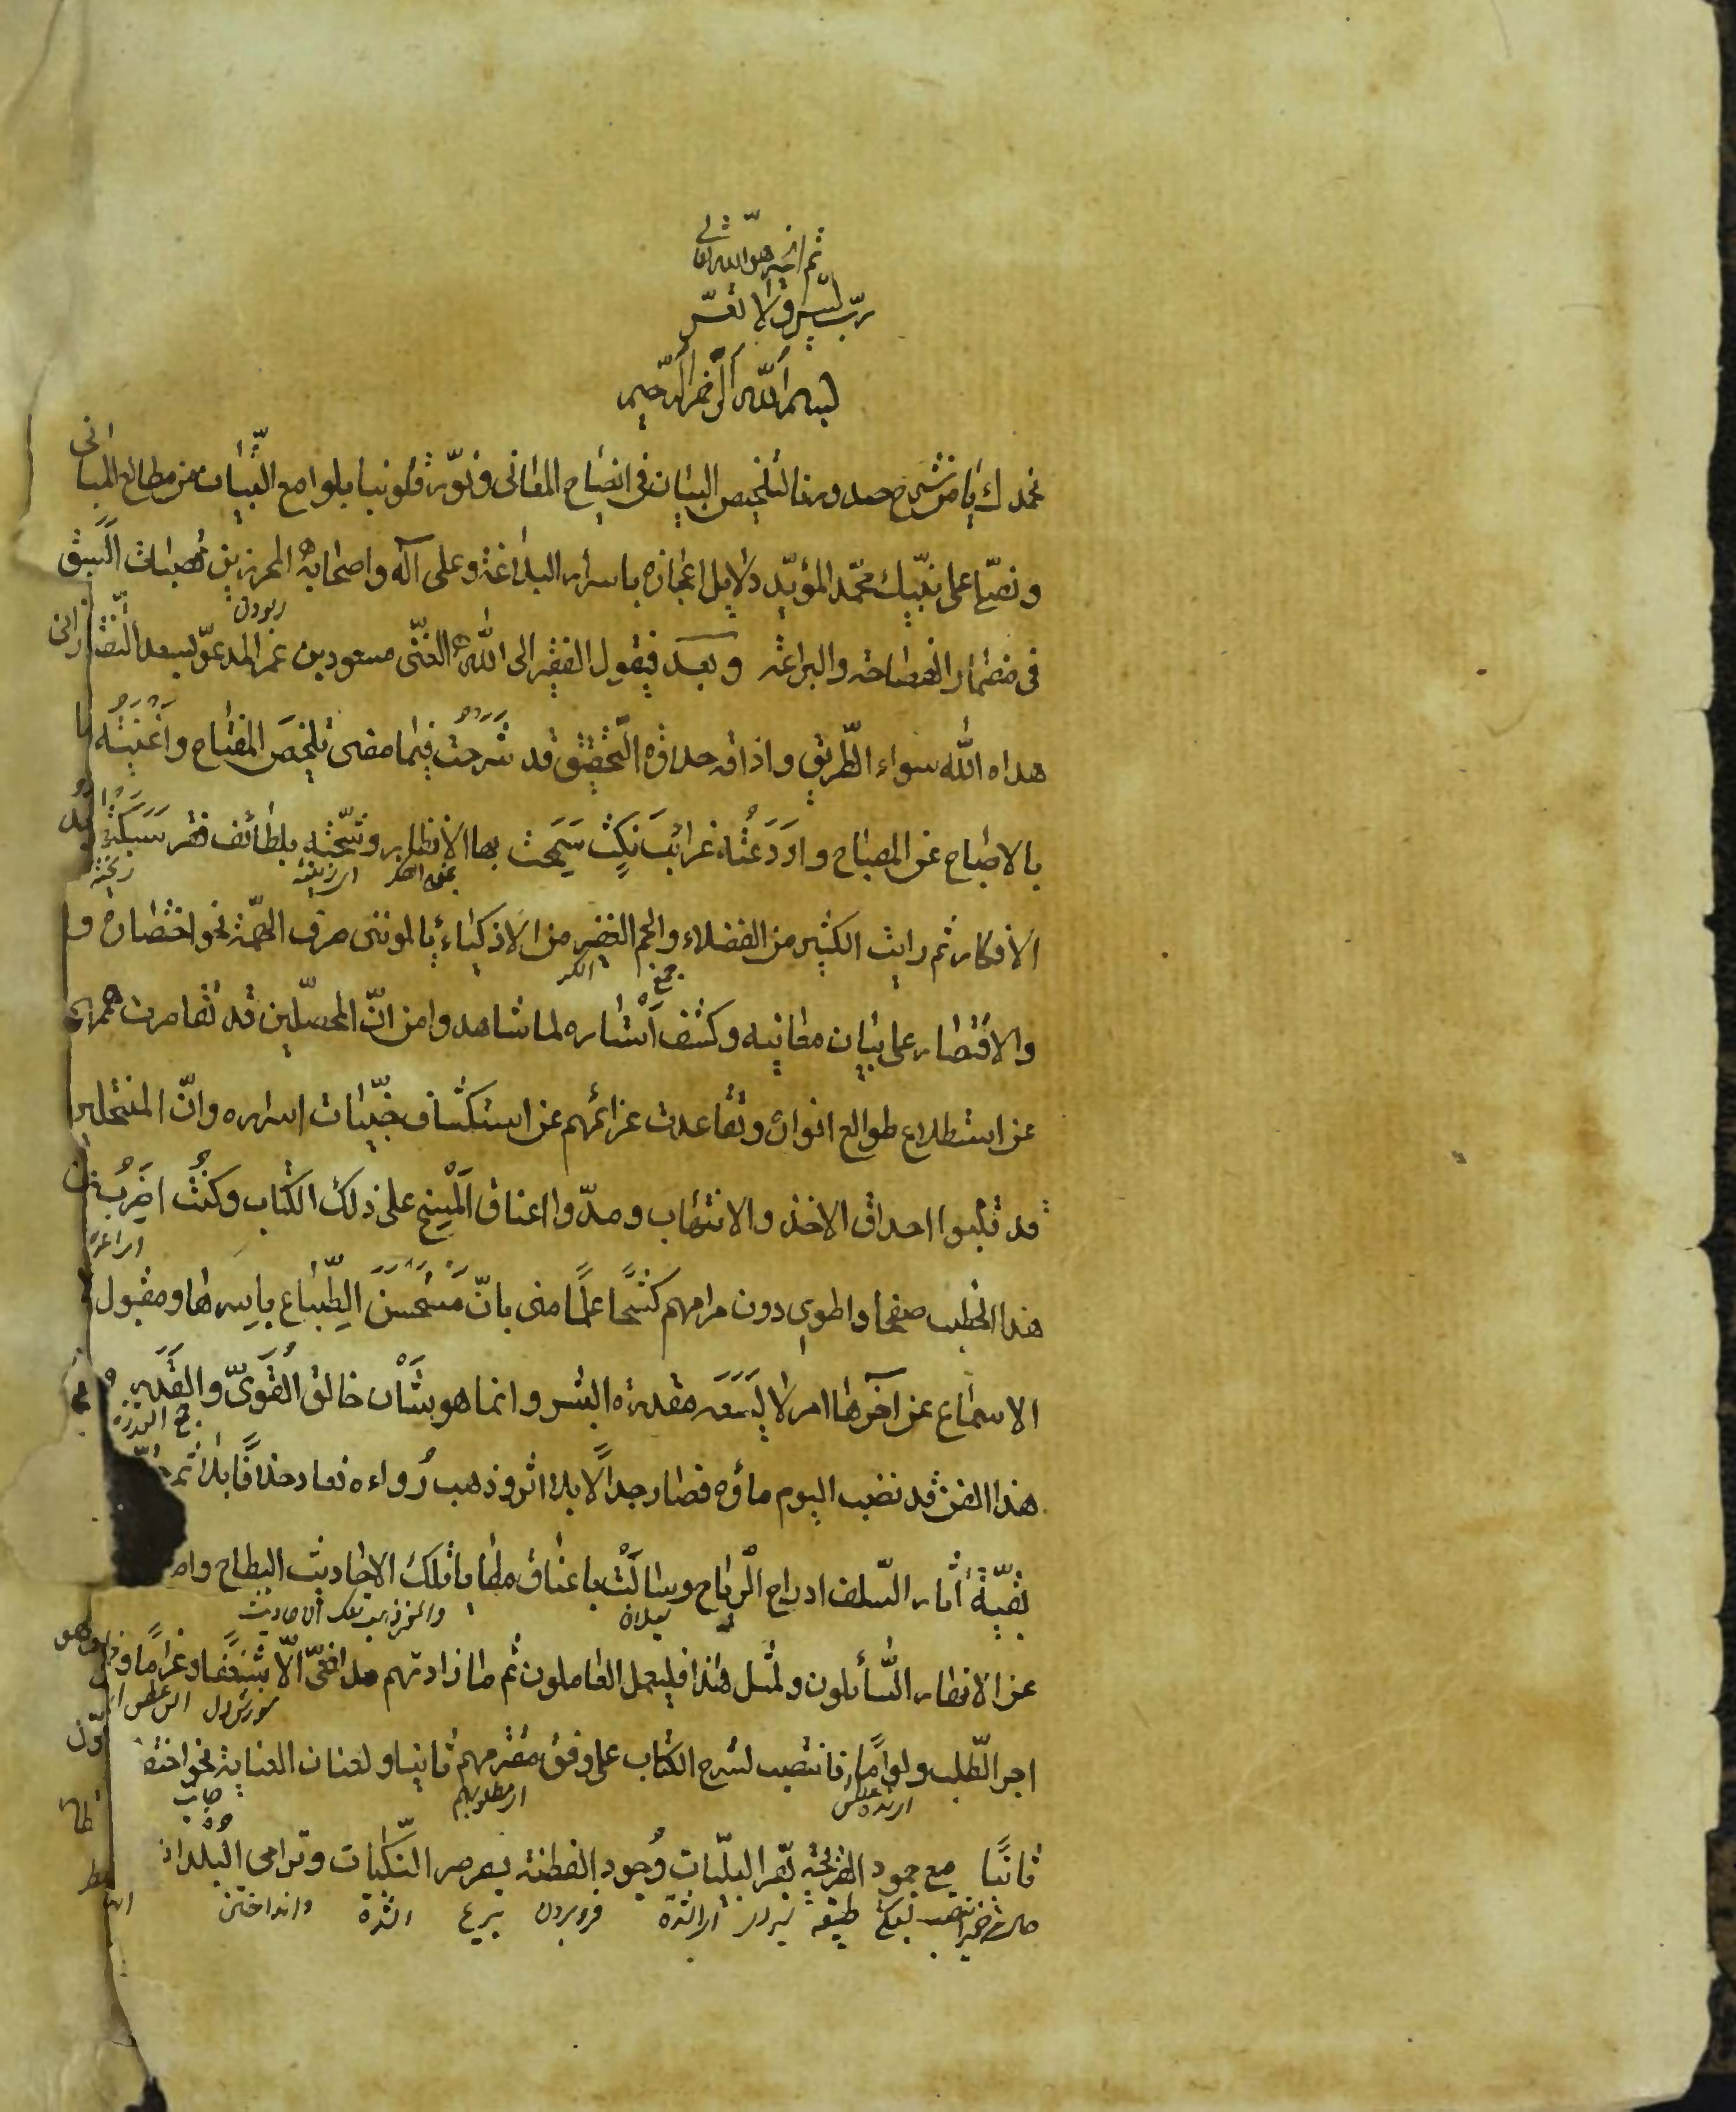 رب يسر ولا تعسر
بسم الله الرحمن الرحيم
نحمدك يا من شرح صدورنا لتلخيص البيان في ايضاح المعاني ونور قلوبنا بلوامع التبيان من مطالع المباني
ونصلي على نبيك محمد المؤيد دلايل اعجازه باسرار البلاغة وعلى آله واصحابه المحرزين قصبات السبق
في مضمار الفصاحة والبراعة وبعد فيقول الفقير الى الله الغني مسعود بن عمر المدعو بسعد التفتازاني
هداه الله سواء الطريق واذاقه حلاوة التحقيق قد شرحت فيما مضى تلخيص المفتاح واغنيته
بالاصباح عن المصباح واودعته غرائب نكت سمحت بها الانظار ووشحته بلطائف فقر سبكتها يد
الافكار ثم رايت الكثير من الفضلاء والجم الغفير من الاذكياء يسألونني صرف الهمة نحو اختصاره و
والاقتصار على بيان معانيه وكشف استاره لما شاهدوا من ان المحصلين قد تقاصرت هممهم
عن استطلاع طوالع انواره وتقاعدت عزائمهم عن استكشاف خبيات اسراره وان المنتحلين
قد قلبوا احداق الاخذ والانتهاب ومدوا اعناق المسخ على ذلك الكتاب وكنت اضرب عن
هذا الخطب صفحا واطوي دون مرامهم كشحا علما مني بان مستحسن الطباع باسرها ومقبول
الاسماع عن آخرها امر لا يسعه مقدرة البشر وانما هو بشأن خالق القوى والقدر
هذا الفن قد نضب اليوم ماؤه فصار جدالا بلا اثر وذهب رواءه فعاد خلافا بلا ثمر
بقية آثار السلف ادراج الرياح وسالت باعناق مطايا تلك الاحاديث البطاح
عن الانظار السائلون ولمثل هذا فليعمل العاملون ثم ما زادتهم مدافعتي الا شغفا وغراما
اجر الطلب ولواما فانتصبت لشرح الكتاب على وفق مقترحهم ثانيا ولعنان العناية نحو اختصا
ثانيا مع جمود القريحة بصر البليات وخمود الفطنة بصرصر النكبات وترامي البلدان